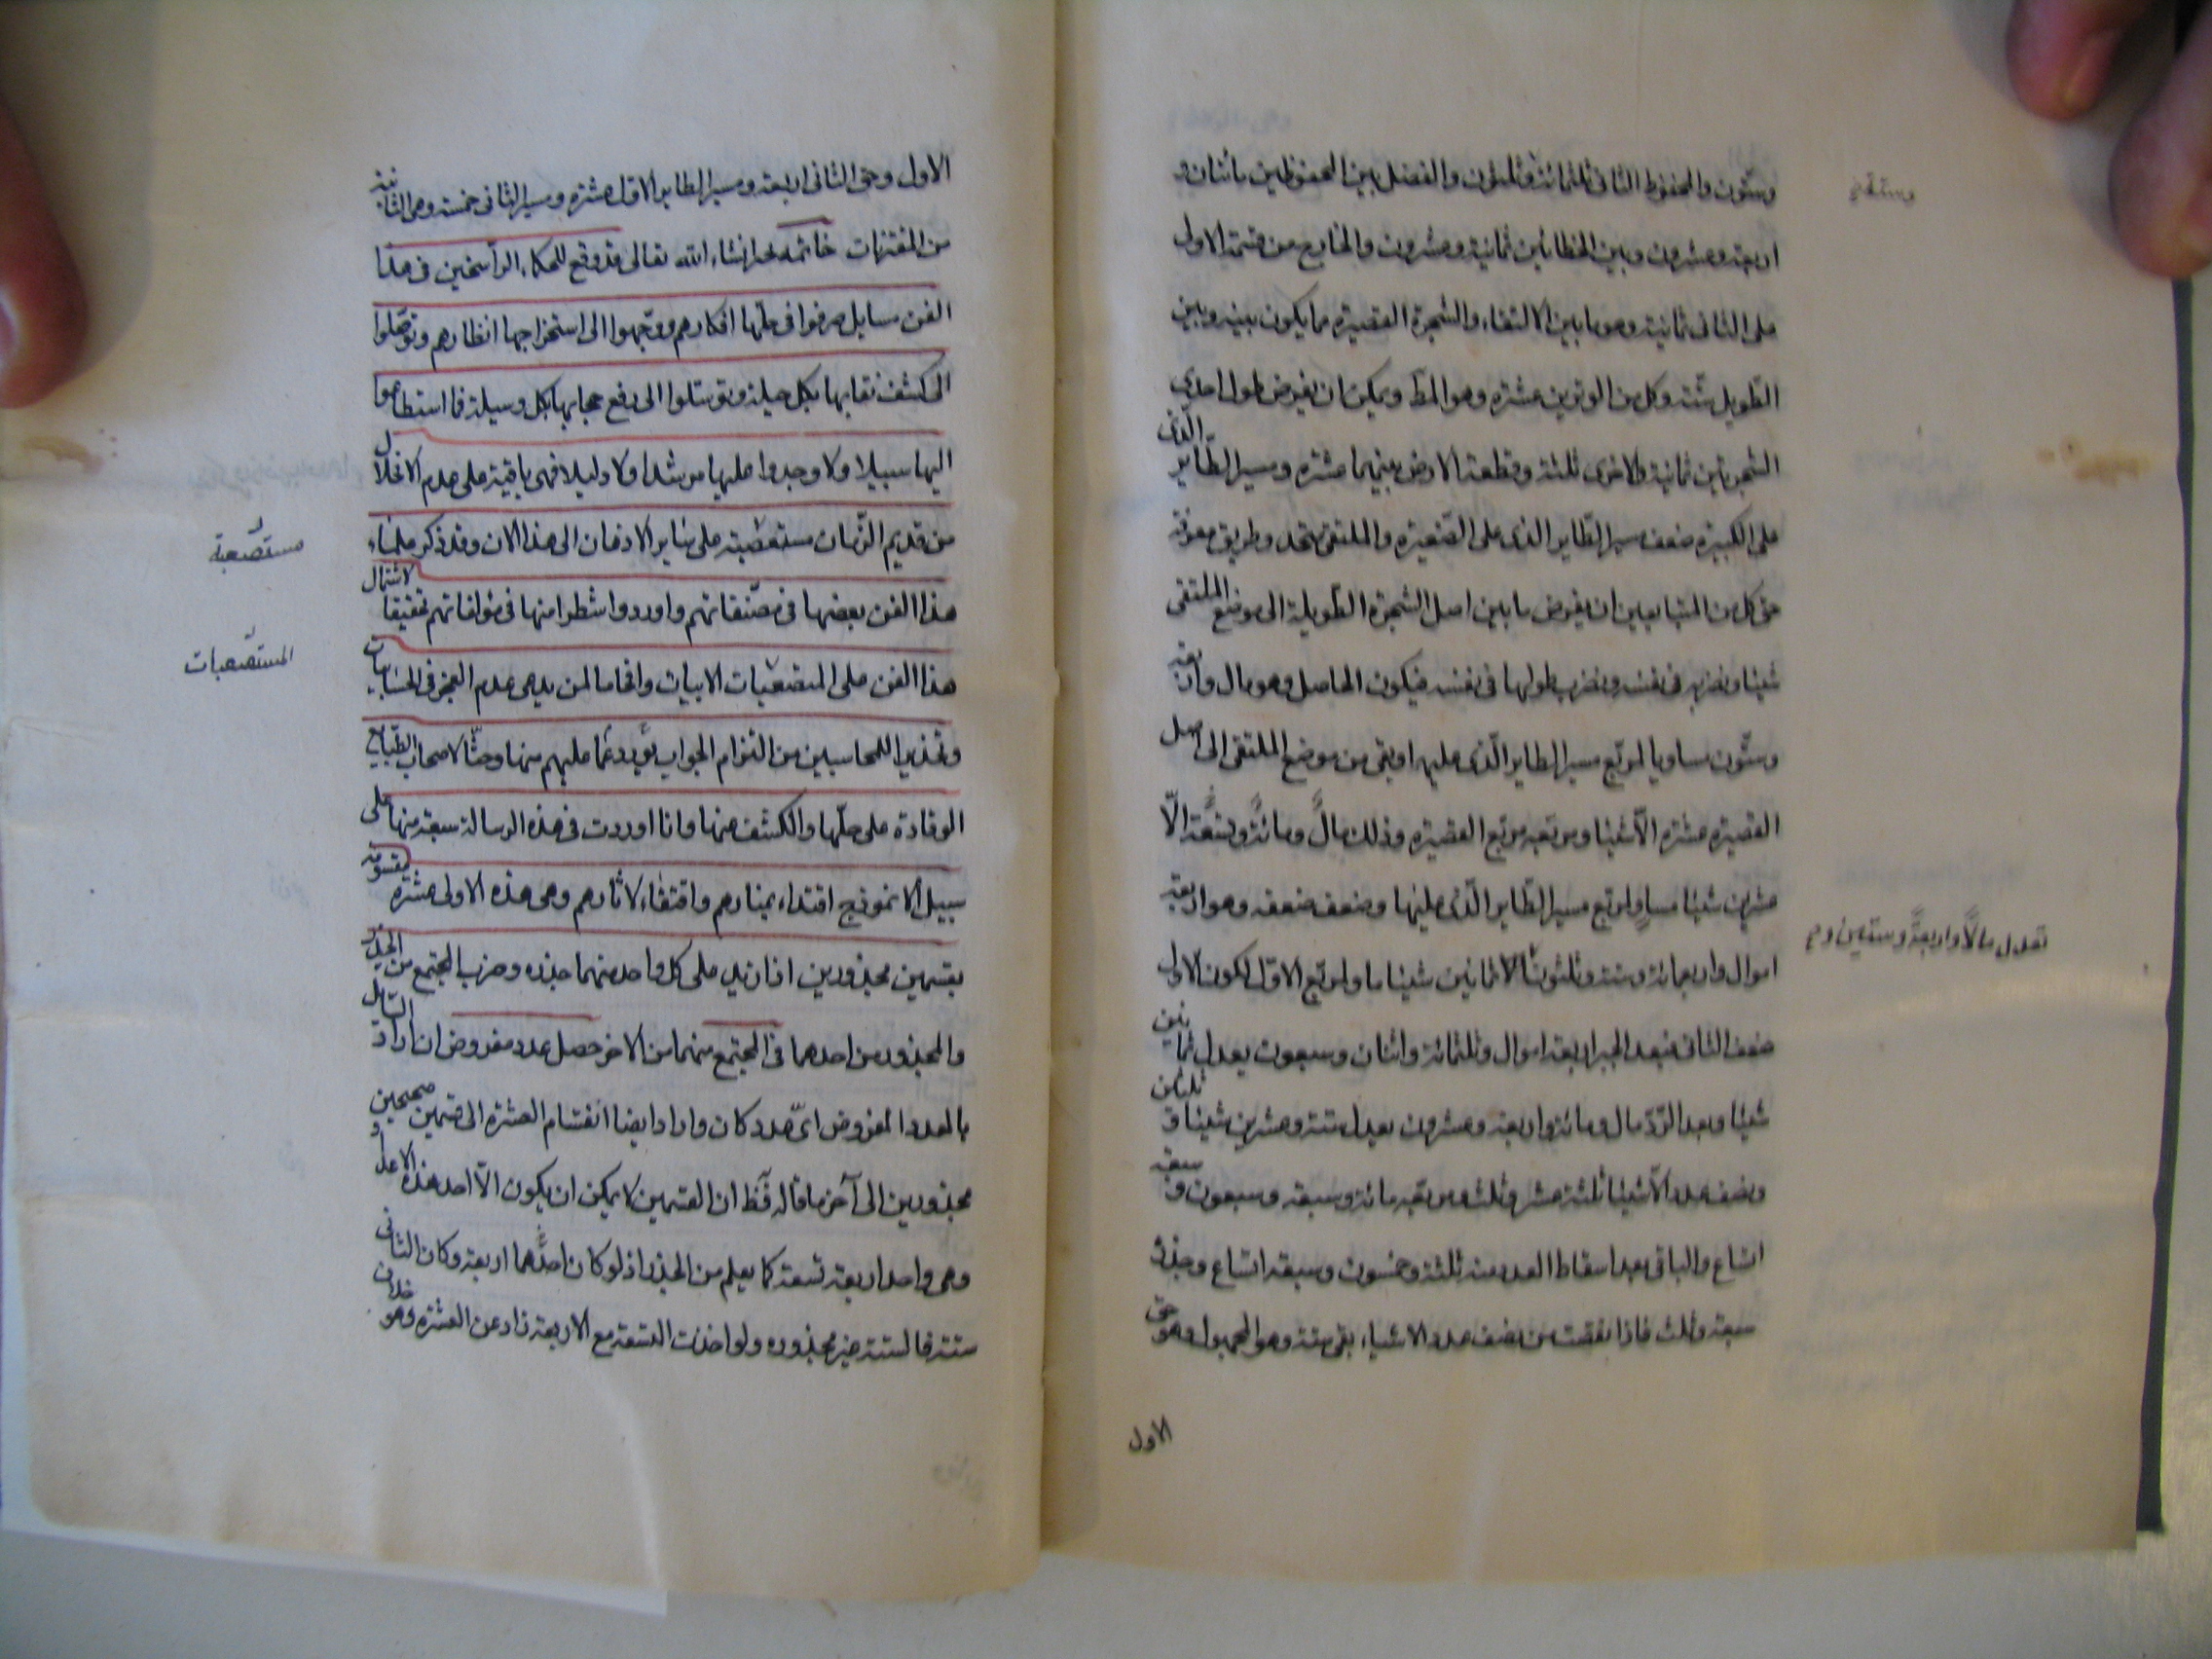 وستّون والمحفوظ الثانى ثلثمائة وثلثون والفضل بين المحفوظين مائتان و
اربعة وعشرون وبين الخطائين ثمانية وعشرون والخارج من قسمة الاول
على الثانى ثمانية وهو ما بين الالتقاء والشجرة القصيرة ما يكون بينه وبين
الطّويل ستّة وكل من الوترين عشرة وهو المط ويمكن ان يفرض طول احدى
الشجرتين ثمانية والاخرى ثلثة وقطعة الارض بينهما عشرة ومسير الطّاير الّذى
على الكبيرة ضعف سير الطّاير الذى على الصّغيرة والملتقى متحد وطريق معرفة
حق كل من المتبايعين ان يفرض ما بين اصل الشجرة الطّويلة الى موضع الملتقى
شيئا ونضربه فى نفسه ونضرب طولها فى نفسه فيكون الحاصل وهو مال واربعة
وستّون مساويا لمربّع مسير الطاير الّذى عليها وبقى من موضع الملتقى الى اصل
القصيرة عشرة الّا شيئا ومربعه مع مربّع القصيرة وذلك مالٌ ومائةٌ وتسعةٌ الّا
عشرين شيئا مساوٍ لمربّع مسير الطّاير الّذى عليها وضعف ضعفه وهو اربعة
تعدل مالًا واربعةً وستين وح
اموال واربعمائة وستة وثلثون الا ثمانين شيئا مساو لمربّع الاوّل لكون الاول
ضعف الثانى فبعد الجبر اربعة اموال وثلثمائة واثنان وسبعون يعدل ثمانين
شيئا وبعد الرّدّ مال ومائة واربعة وعشرون يعدل ستة وعشرين شيئا و ثلثين
ونصف عدد الاشيا ثلثة عشر وثلث ومربّعه مائة وسبعة وسبعون و سبعة
اتساع والباقى بعد اسقاط العدد منه ثلثة وخمسون وسبعة اتساع وجذره
سبعة وثلث فاذا نقصت من نصف عدد الاشياء بقى ستة وهو المجهول وهو حق
الاول
الاول وحق الثانى اربعة ومسير الطاير الاول عشرة ومسير الثانى خمسة وهى الثانية
من المفتزهات خاتمه نحو انشاء الله تعالى قد وقع للحكماء الراسخين فى هذا
الفن مسايل صرفوا فى حلّها افكارهم ووجّهوا الى استخراجها انظارهم وتوصّلوا
الى كشف نقابها بكل حيلة وتوسّلوا الى رفع حجابها بكل وسيلة فما استطاعوا
اليها سبيلا ولا وجدوا عليها مرشدا ولا دليلا فهى باقية على عدم الانحلال
من قديم الزّمان مستعصية على ساير الاذهان الى هذا الان وقد ذكر علماء
مستصعبة
هذا الفن بعضها فى مصنّفاتهم واوردوا شطرا منها فى مؤلفاتهم تحقيقا لاشتمال
المستصعبات
هذا الفن على المستصعبات الابيات وافحاما لمن يدعى عدم العجز فى الحسابيات
وتحذيرا للمحاسبين من التزام الجواب عمّا يورد عليهم منها وحثّا لاصحاب الطّبايع
الوقادة على حلّها والكشف عنها وانا اوردت فى هذه الرسالة سبعة منها على
سبيل الانموذج اقتداء بمنارهم واقتفاء لاثارهم وهى هذه الاولى عشرة مقسومة
بقسمين مجذورين اذا زيد على كل واحد منهما جذره وضرب المجتمع من الجذر
والمجذور من احدهما فى المجتمع منهما من الاخر حصل عدد مفروض ان اراد السّائل
بالعدد المفروض اىّ عدد كان واراد ايضا انقسام العشرة الى قسمين صحيحين
مجذورين الى آخر ما قاله فظ ان القسمين لا يمكن ان يكون الّا احد هذه الاعداد
وهى واحد اربعة تسعة كما يعلم من الجذر اذ لو كان احدهما اربعة وكان الثانى
ستة فالستة غير مجذورة ولو اخذت التسعة مع الاربعة زاد عن العشرة وهو خلاف